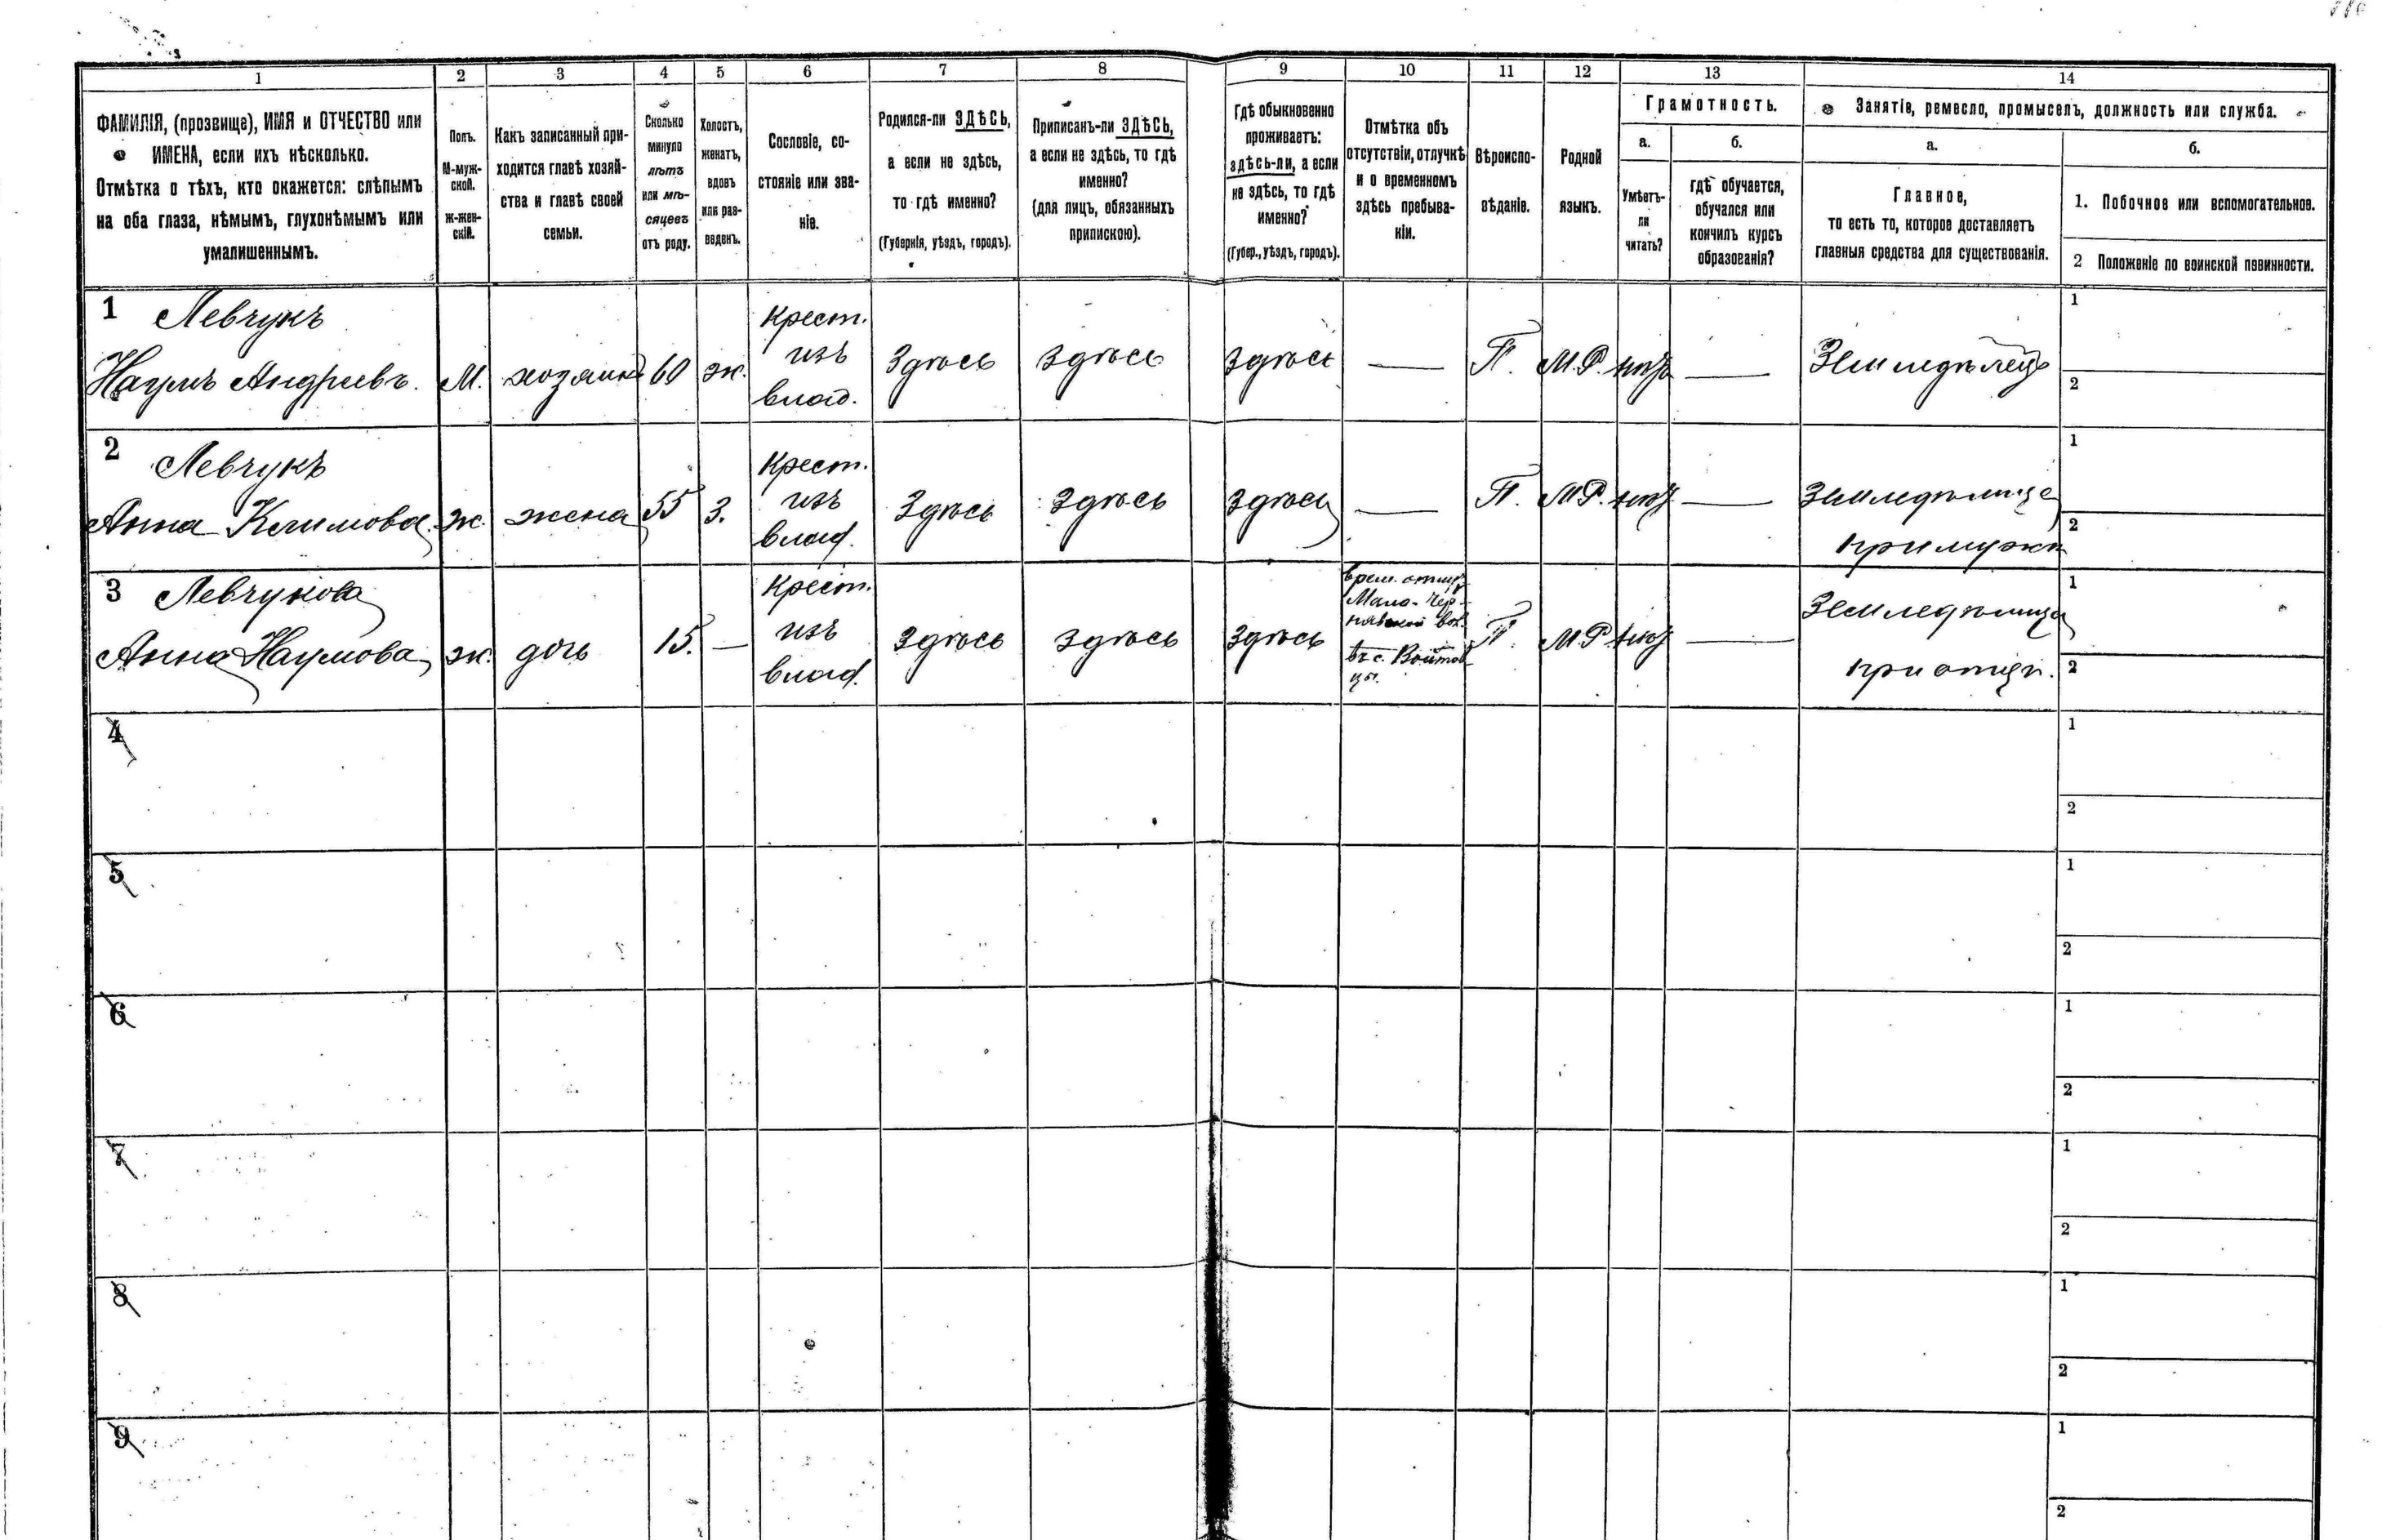 1 2 3 4 5 6 7 8 9 10 11 12 13 14
ФАМИЛІЯ, (прозвище), ИМЯ и ОТЧЕСТВО или
ИМЕНА, если ихъ нѣсколько.
Отмѣтка о тѣхъ, кто окажется: слѣпымъ
на оба глаза, нѣмымъ, глухонѣмымъ или
умалишеннымъ.
Полъ.
М-муж-
ской.
ж-жен-
скій.
Какъ записанный при-
ходится главѣ хозяй-
ства и главѣ своей
семьи.
Сколько
минуло
лѣтъ
или мѣ-
сяцевъ
отъ роду.
Холостъ,
женатъ,
вдовъ
или раз-
веденъ.
Сословіе, со-
стояніе или зва-
ніе.
Родился-ли ЗДѢСЬ,
а если не здѣсь,
то гдѣ именно?
(Губернія, уѣздъ, городъ).
Приписанъ-ли ЗДѢСЬ,
а если не здѣсь, то гдѣ
именно?
(для лицъ, обязанныхъ
припискою).
Гдѣ обыкновенно
проживаетъ:
здѣсь-ли, а если
не здѣсь, то гдѣ
именно?
(Губер., уѣздъ, городъ).
Отмѣтка объ
отсутствіи, отлучкѣ
и о временномъ
здѣсь пребыва-
ніи.
Вѣроиспо-
вѣданіе.
Родной
языкъ.
Грамотность.
а.
Умѣетъ-
ли
читать?
б.
гдѣ обучается,
обучался или
кончилъ курсъ
образованія?
Занятіе, ремесло, промыселъ, должность или служба.
а.
Главное,
то есть то, которое доставляетъ
главныя средства для существованія.
б.
1. Побочное или вспомогательное.
2 Положеніе по воинской повинности.
1 Левчукъ
Наумъ Андреевъ.
М.
хозяинъ
60
ж.
крест.
изъ
влад.
Здѣсь
здѣсь
здѣсь
—
П.
М.Р.
нѣтъ
—
Земледѣлецъ
1
2
2 Левчукъ
Анна Климова
ж.
жена
55
з.
крест.
изъ
влад.
Здѣсь
здѣсь
здѣсь
—
П.
М.Р.
нѣтъ
—
Земледѣлица
при мужѣ
1
2
3 Левчукова
Анна Наумова
ж.
дочь
15.
—
крест.
изъ
влад.
Здѣсь
здѣсь
здѣсь
въ с. Войтов
цы.
П.
М.Р.
нѣтъ
—
Земледѣлица
при отцѣ.
1
2
4
1
2
5
1
2
6
1
2
7
1
2
8
1
2
9
1
2